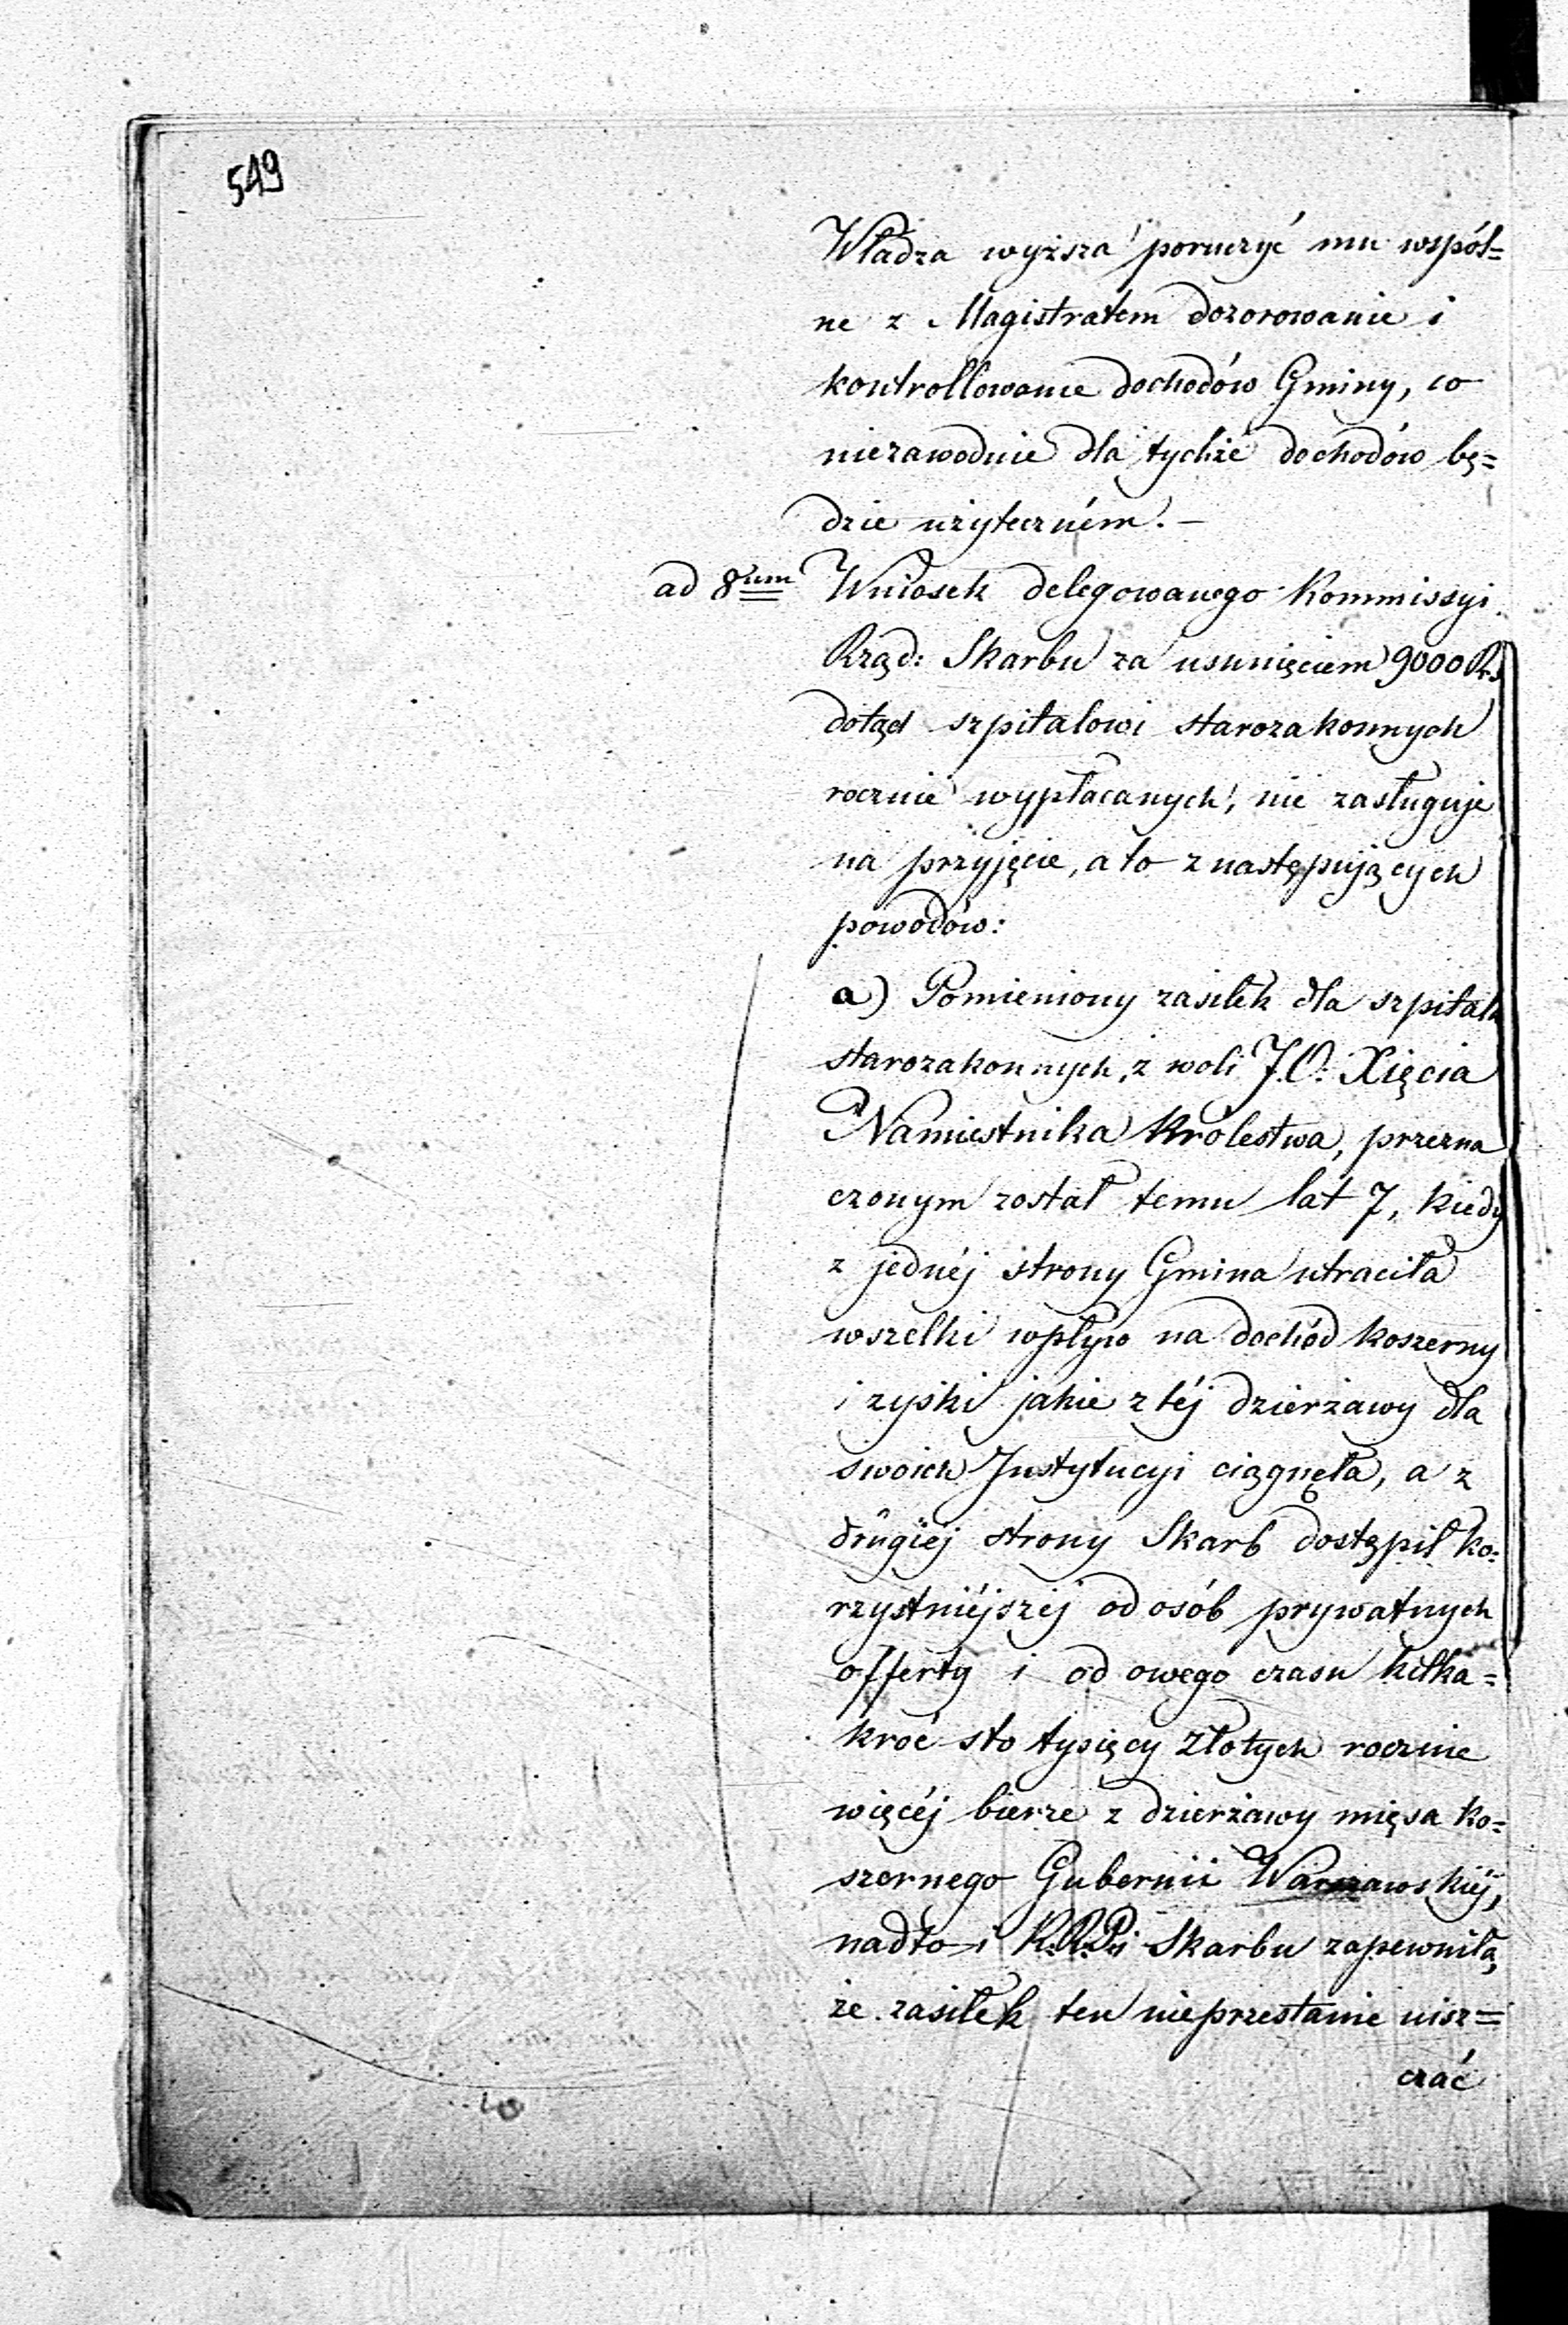 549
Władza wyższa poruczyć mu wspól=
ne z Magistratem dozorowanie i
kontrollowanie dochodów Gminy, co
niezawodnie dla tychże dochodów bę=
dzie użyteczném. —
ad 8um Wniosek delegowanego Kommissyi
Rząd: Skarbu za usunięciem 9000 Rs
dotąd szpitalowi starozakonnych
rocznie wypłacanych, nie zasługuje
na przyjęcie, a to z następujących
powodów:
a) Pomieniony zasiłek dla szpitala
starozakonnych, z woli J.O: Xięcia
Namiestnika Królestwa, przezna
czonym został temu lat 7, kiedy
z jednéj strony Gmina utraciła
wszelki wpływ na dochód koszerny
i zyski jakie z téj dzierżawy dla
swoich Instytucyi ciągnęła, a z
drugiej strony Skarb dostąpił ko=
rzystniéjszéj od osób prywatnych
offerty i od owego czasu kilka=
kroć sto tysięcy złotych rocznie
więcéj bierze z dzierżawy mięsa ko=
szernego Gubernii Warszawskiéj,
nadto i K.R.P.i Skarbu zapewniła,
że zasiłek ten nieprzestanie uisz=
czać